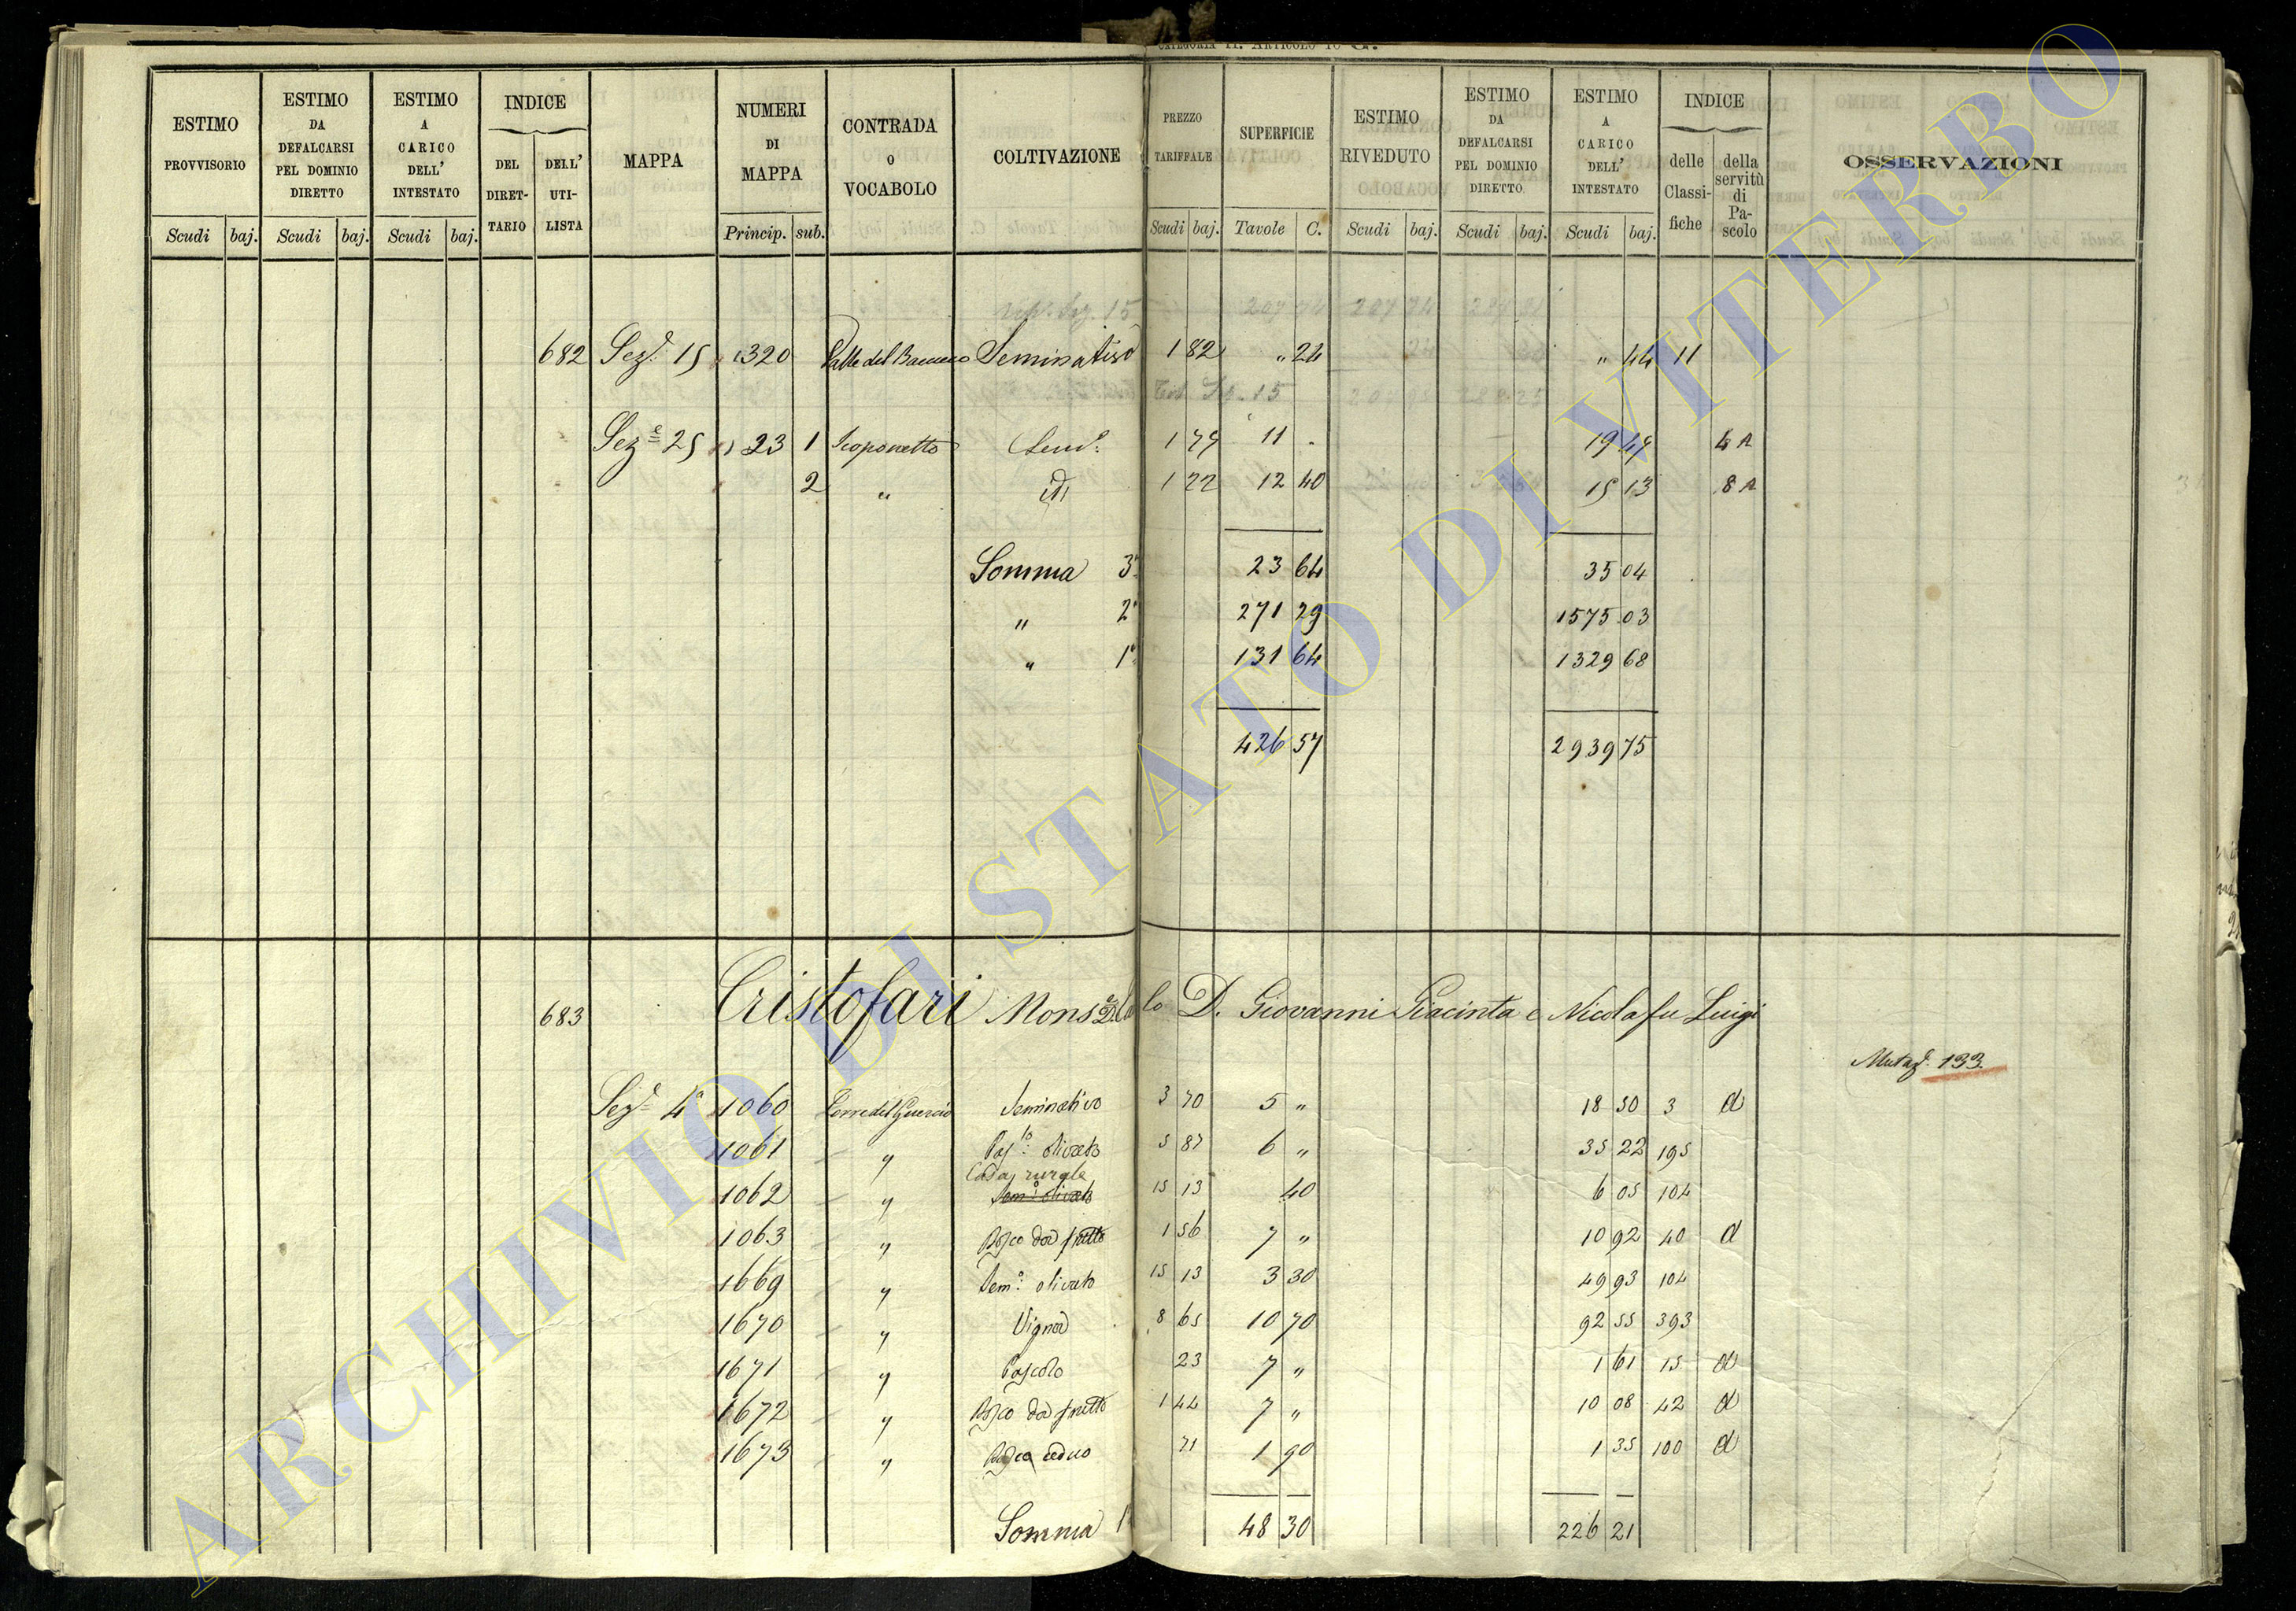 CATEGORIA II. ARTICOLO 10 G.
ESTIMO PROVVISORIO
ESTIMO DA DEFALCARSI PEL DOMINIO DIRETTO
ESTIMO A CARICO DELL' INTESTATO
INDICE
DEL DIRET-TARIO
DELL' UTI-LISTA
MAPPA
NUMERI DI MAPPA
CONTRADA O VOCABOLO
COLTIVAZIONE
PREZZO TARIFFALE
SUPERFICIE
ESTIMO RIVEDUTO
ESTIMO DA DEFALCARSI PEL DOMINIO DIRETTO
ESTIMO A CARICO DELL' INTESTATO
INDICE
delle Classi-fiche
della servitù di Pa-scolo
OSSERVAZIONI
Scudi baj. Scudi baj. Scudi baj. Princip. sub. Scudi baj. Tavole C. Scudi baj. Scudi baj. Scudi baj.
682 Sez.e 15 1320 Valle del Seminativo 1 82 " 24 " 44 11
Sez.e 25 23 1 Scoponetto Sem.o 1 77 11 . 19 47 4 A
2 " id 1 22 12 40 15 13 8 A
Somma 3a 23 64 35 04
" 2a 271 29 1575 03
" 1a 131 64 1329 68
426 57 2939 75
683 Cristofari Mons. D. Giovanni Giacinta e Nicola fu Luigi
Mutaz.e 133
Sez.e 4a 1060 Torre del Guercio Seminativo 3 70 5 " 18 50 3 d
1061 " Pas.lo olivato 5 87 6 " 35 22 195
Casa rurale
1062 " Sem.o olivato 15 13 40 6 05 104
1063 " Bosco da frutto 1 56 7 " 10 92 40 d
1669 " Sem.o olivato 15 13 3 30 49 93 104
1670 " Vigna 8 65 10 70 92 55 393
1671 " Pascolo 23 7 " 1 61 15 d
1672 " Bosco da frutto 1 44 7 " 10 08 42 d
1673 " Bosco ceduo 71 1 90 1 35 100 d
Somma 1a 48 30 226 21
ARCHIVIO DI STATO DI VITERBO